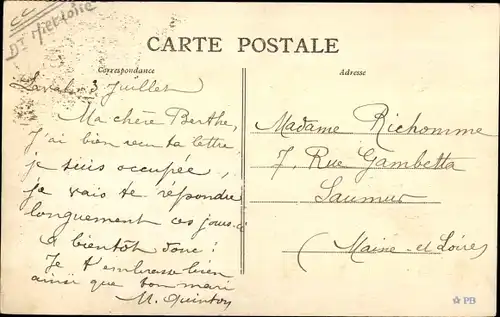 Dt Met Loire
CARTE POSTALE
Correspondance
Adresse
Laval 3 Juillet
Ma chère Berthe,
J'ai bien reçu ta lettre
je suis occupée,
je vais te répondre
longuement ces jours-ci
A bientôt donc!
Je t'embrasse bien
ainsi que ton mari
M. Quinton
Madame Richomme
7, Rue Gambetta
Saumur
(Maine-et-Loire)
PB